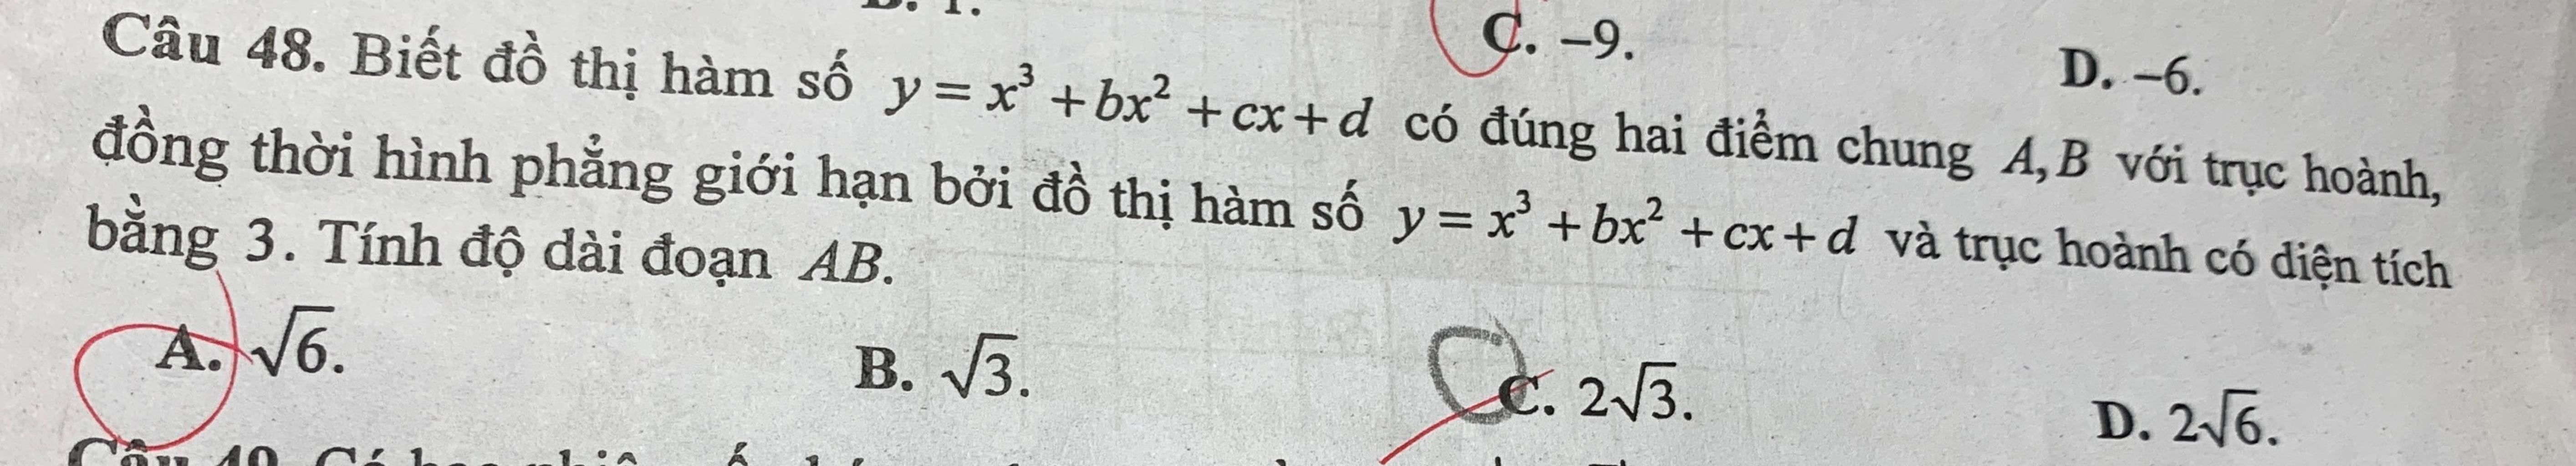 C. −9.
D. −6.
Câu 48. Biết đồ thị hàm số y = x³ + bx² + cx + d có đúng hai điểm chung A, B với trục hoành,
đồng thời hình phẳng giới hạn bởi đồ thị hàm số y = x³ + bx² + cx + d và trục hoành có diện tích
bằng 3. Tính độ dài đoạn AB.
A. √6.
B. √3.
C. 2√3.
D. 2√6.